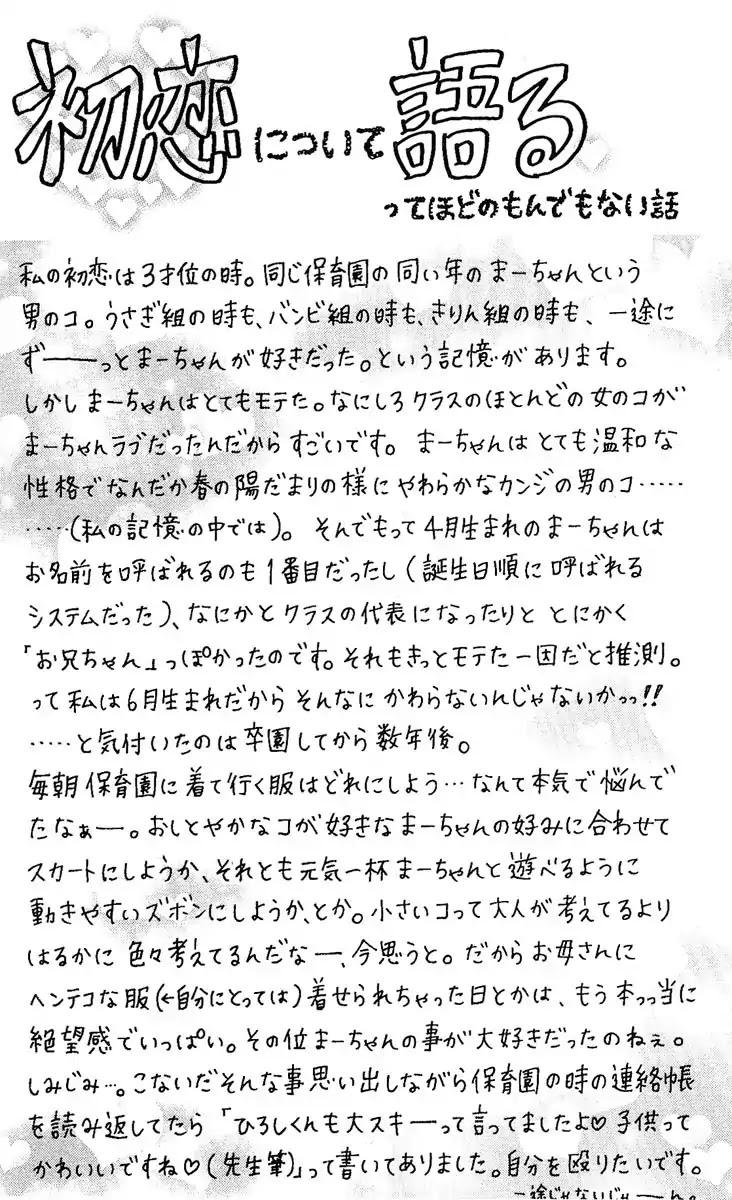 初恋について語る
ってほどのもんでもない話
私の初恋は3才位の時。同じ保育園の同い年のまーちゃんという
男のコ。うさぎ組の時も、バンビ組の時も、きりん組の時も、一途に
ず━━っとまーちゃんが好きだった。という記憶があります。
しかしまーちゃんはとてもモテた。なにしろクラスのほとんどの女のコが
まーちゃんラブだったんだからすごいです。まーちゃんはとても温和な
性格でなんだか春の陽だまりの様にやわらかなカンジの男のコ……
……(私の記憶の中では)。そんでもって4月生まれのまーちゃんは
お名前を呼ばれるのも1番目だったし(誕生日順に呼ばれる
システムだった)、なにかとクラスの代表になったりと とにかく
「お兄ちゃん」っぽかったのです。それもきっとモテた一因だと推測。
って私は6月生まれだからそんなにかわらないんじゃないかっっ!!
……と気付いたのは卒園してから数年後。
毎朝保育園に着て行く服はどれにしよう…なんて本気で悩んで
たなぁー。おしとやかなコが好きなまーちゃんの好みに合わせて
スカートにしようか、それとも元気一杯まーちゃんと遊べるように
動きやすいズボンにしようか、とか。小さいコって大人が考えてるより
はるかに色々考えてるんだなー、今思うと。だからお母さんに
ヘンテコな服(←自分にとっては)着せられちゃった日とかは、もう本っっ当に
絶望感でいっぱい。その位まーちゃんの事が大好きだったのねぇ。
しみじみ…。こないだそんな事思い出しながら保育園の時の連絡帳
を読み返してたら「ひろしくんも大スキーって言ってましたよ♡子供って
かわいいですね♡(先生筆)」って書いてありました。自分を殴りたいです。
一途じゃないじゃーーん。